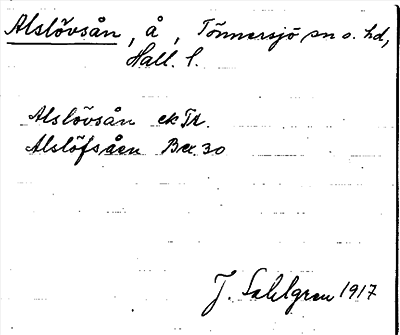 Alslövsån, å, Tönnersjö sn o. hd,
Hall. l.
Alslövsån ek Tr.
Alslöfsåen Bex. 30
J. Sahlgren 1917